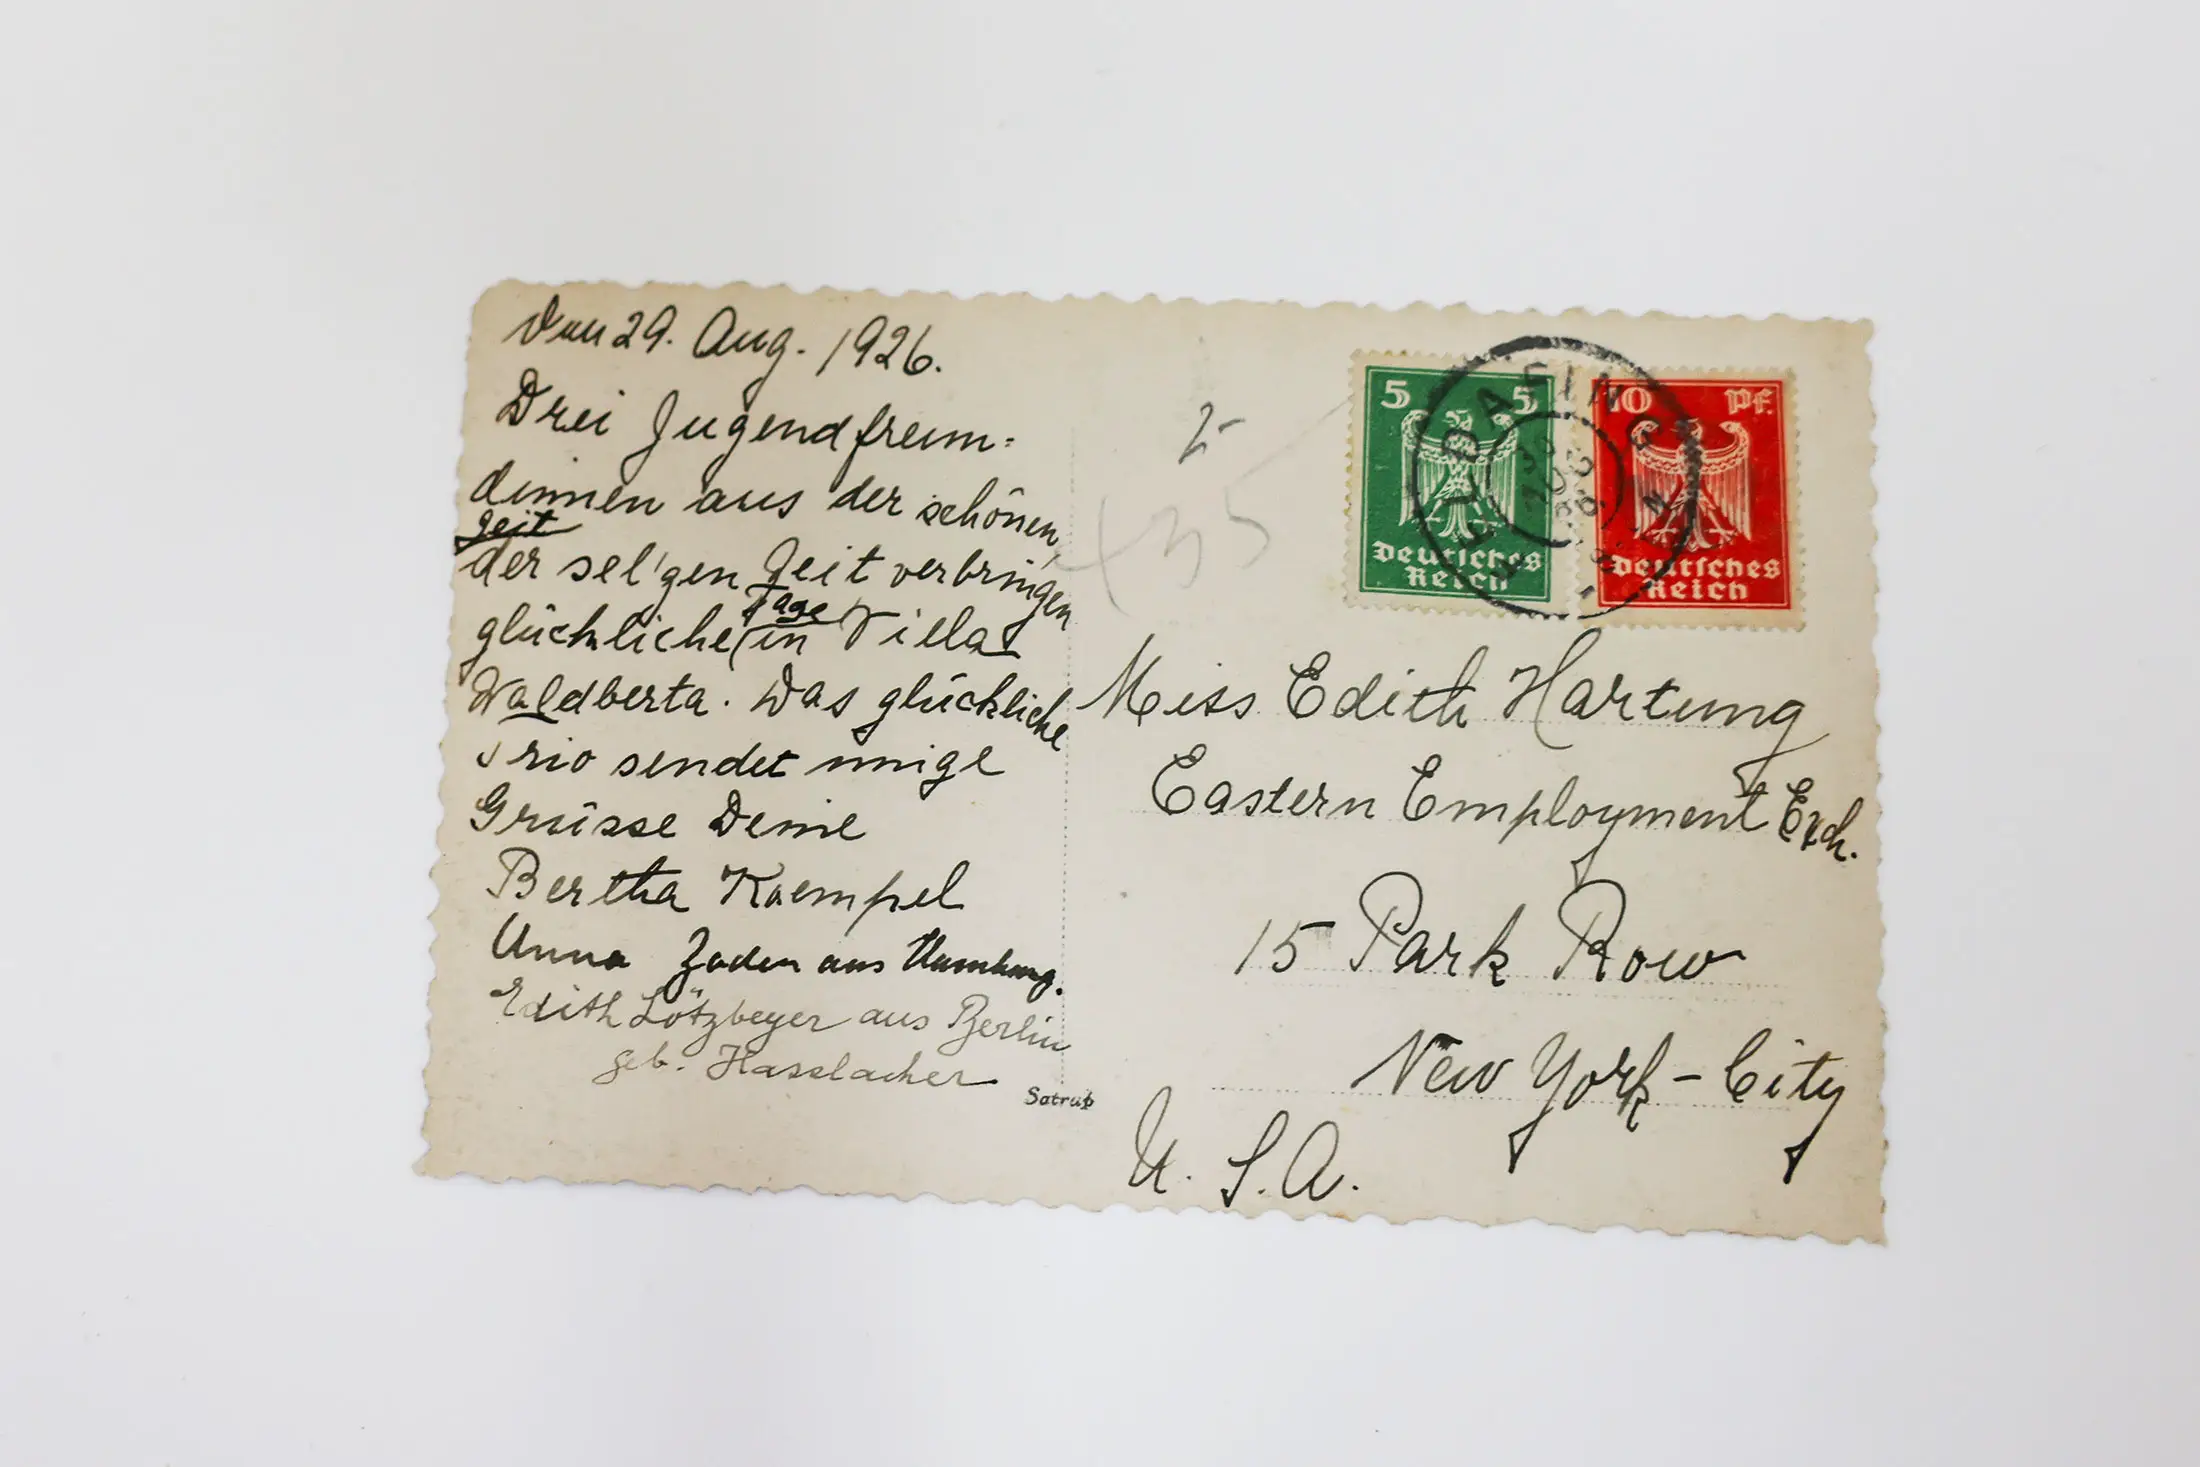 Den 29. Aug. 1926.
Drei Jugendfreun=
dinnen aus der schönen
Zeit
der sel'gen Zeit verbringen
Tage
glückliche in Villa
Waldberta. Das glückliche
Trio sendet innige
Grüsse Deine
Bertha Kaempfel
Anna Zaden aus Hamburg.
Edith Lötzbeyer aus Berlin
geb. Hasslacher
Satrap
2-
35
5 5
Deutsches
Reich
10 Pf.
Deutsches
Reich
FELDAFING
30
AUG
26
Miss Edith Hartung
Eastern Employment Exch.
15 Park Row
New York-City
U.S.A.